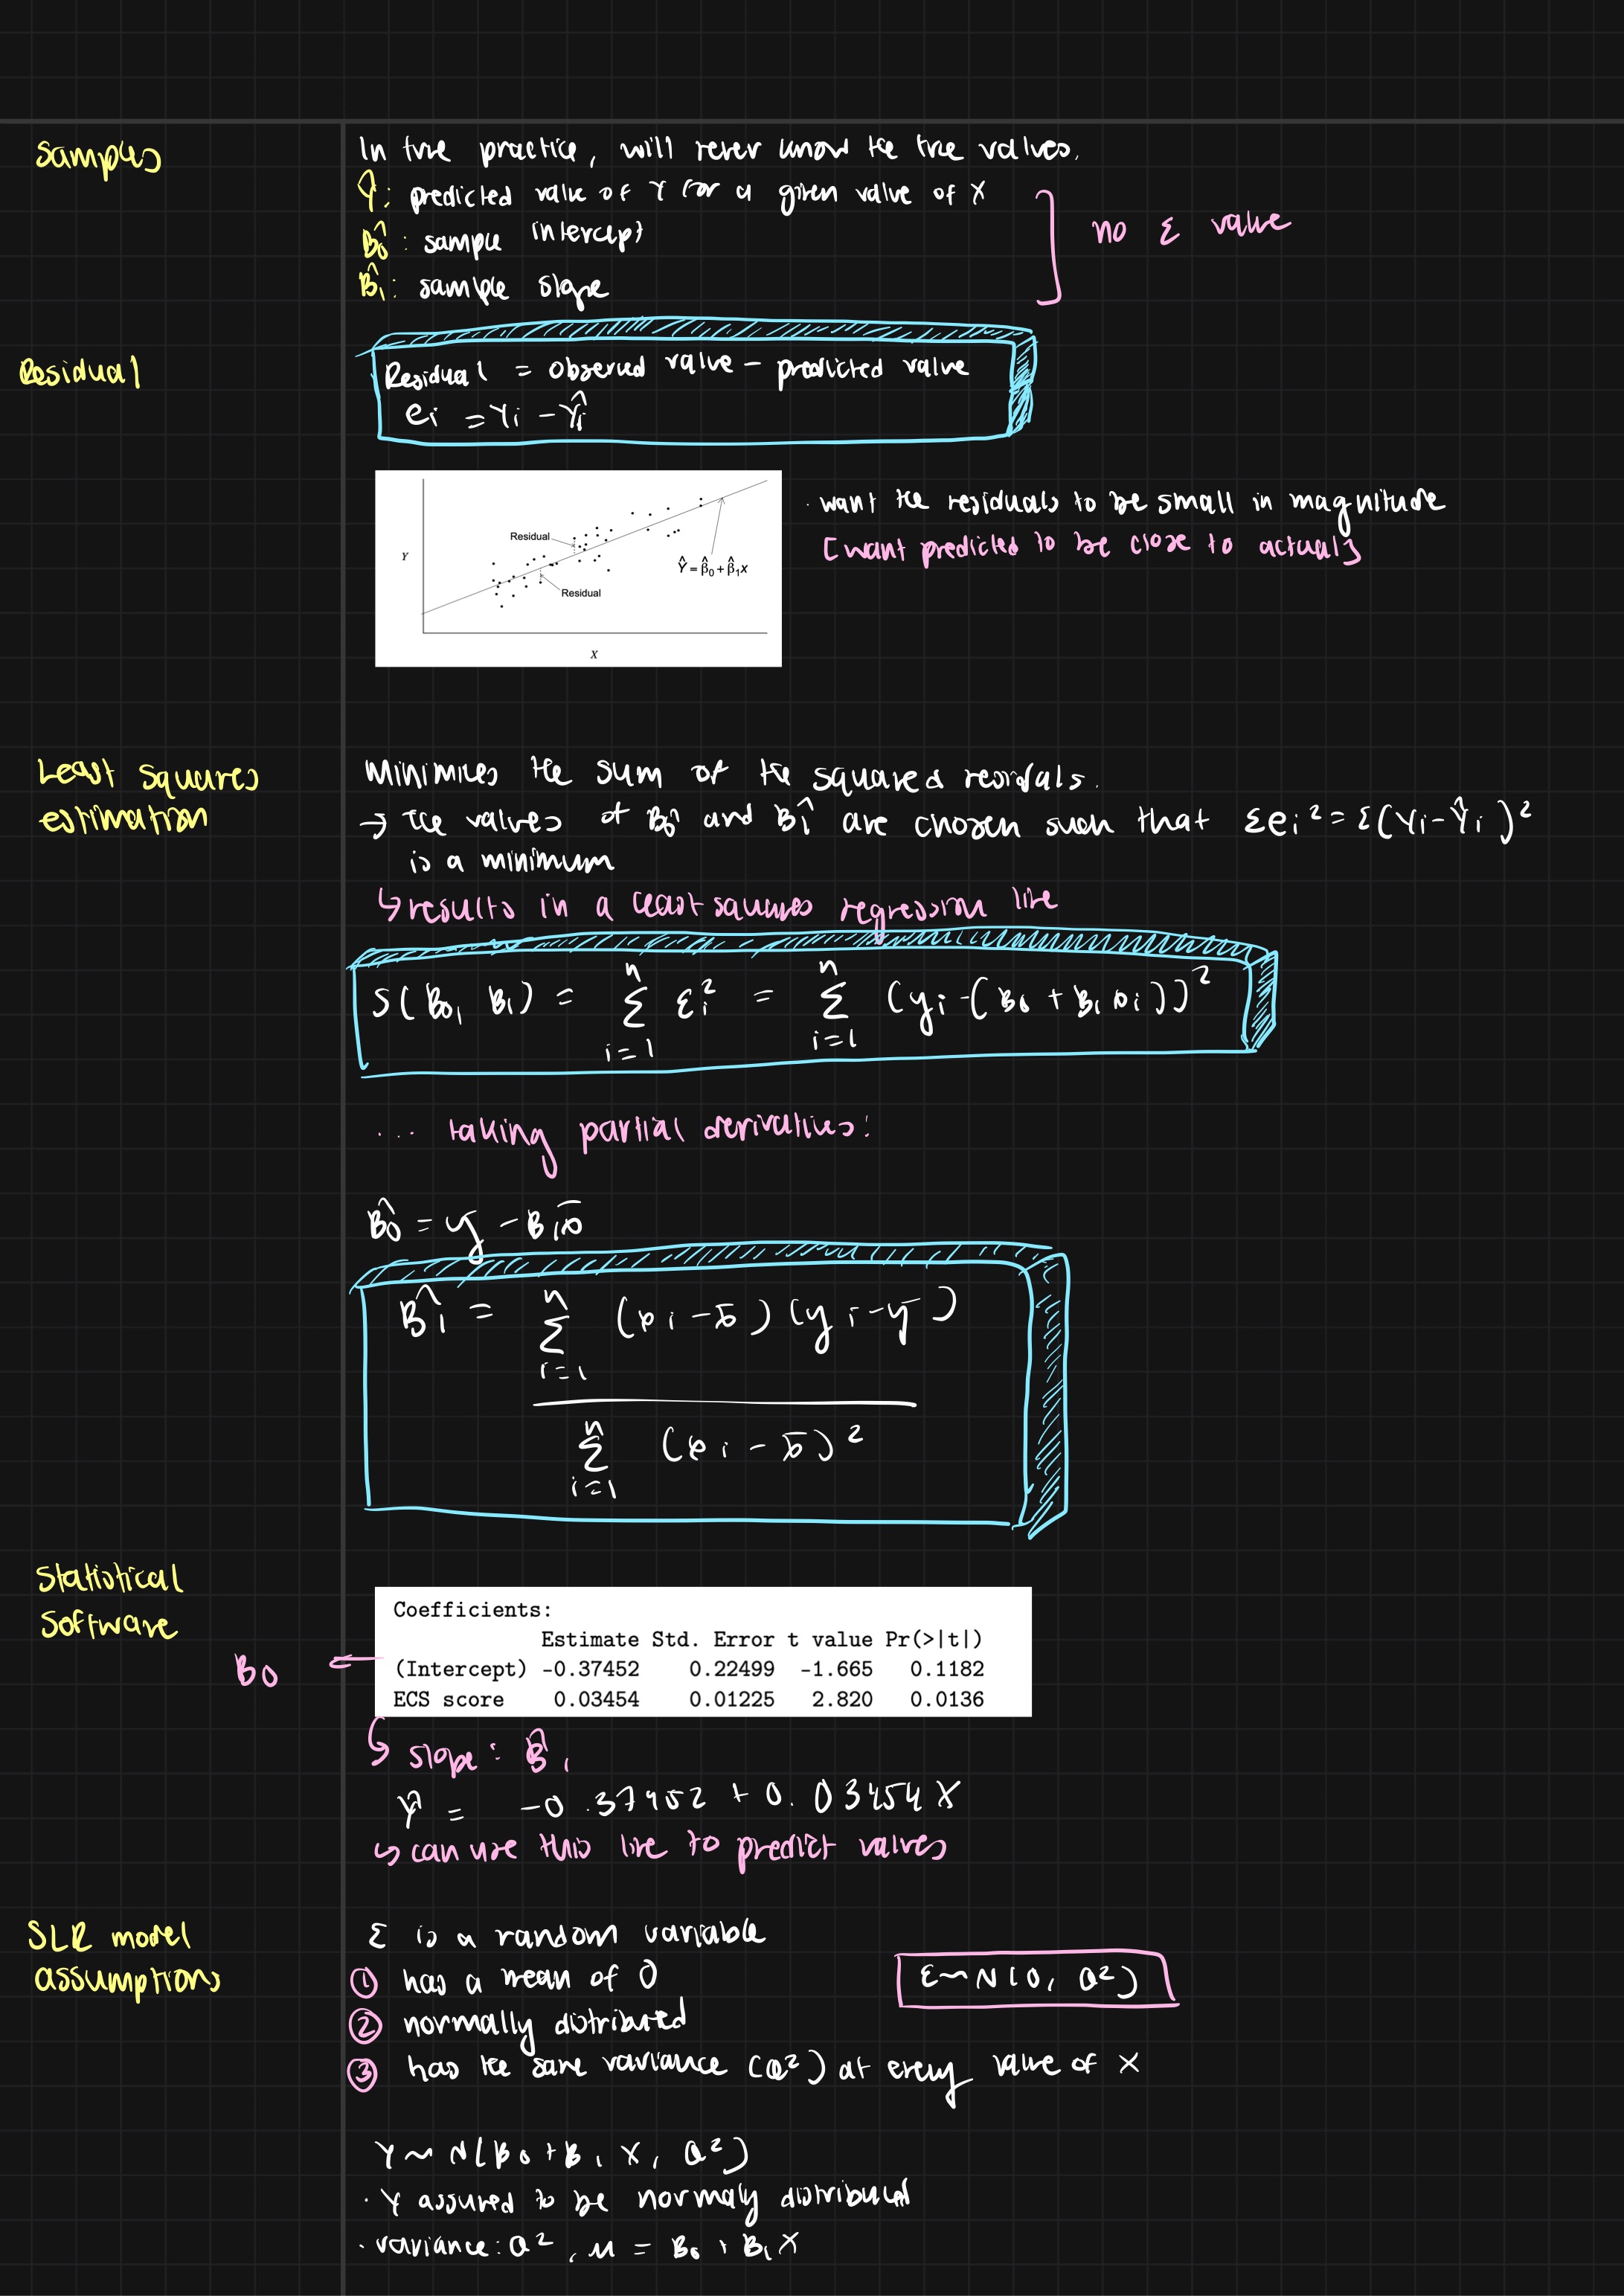 Samples
In true practice, will never know the true values.
Ŷ: predicted value of Y for a given value of X
B̂₀: sample intercept
B̂₁: sample slope
no ε value
Residual
Residual = observed value - predicted value
eᵢ = Yᵢ - Ŷᵢ
Y
Residual
Residual
Ŷ = β̂₀ + β̂₁x
X
· want the residuals to be small in magnitude
[want predicted to be close to actual]
Least Squares
estimation
Minimizes the sum of the squared residals.
→ the values of B̂₀ and B̂₁ are chosen such that Σeᵢ² = Σ(Yᵢ - Ŷᵢ)²
is a minimum
↳ results in a least squares regression line
S(B₀, B₁) = Σ εᵢ² = Σ (yᵢ - (B₀ + B₁xᵢ))²
n
i=1
n
i=1
... taking partial derivatives:
B̂₀ = y - B₁x̄
B̂₁ = Σ (xᵢ - x̄)(yᵢ - ȳ)
n
i=1
Σ (xᵢ - x̄)²
n
i=1
Statistical
Software
B₀ ←
Coefficients:
Estimate Std. Error t value Pr(>|t|)
(Intercept) -0.37452 0.22499 -1.665 0.1182
ECS score 0.03454 0.01225 2.820 0.0136
↳ slope: B̂₁
Ŷ = -0.37452 + 0.03454 X
↳ can use this line to predict values
SLR model
assumptions
ε is a random variable
① has a mean of 0
② normally distributed
③ has the same variance (σ²) at every value of X
ε ~ N(0, σ²)
Y ~ N(B₀ + B₁X, σ²)
· Y assumed to be normaly distributed
· variance: σ², μ = B₀ + B₁X